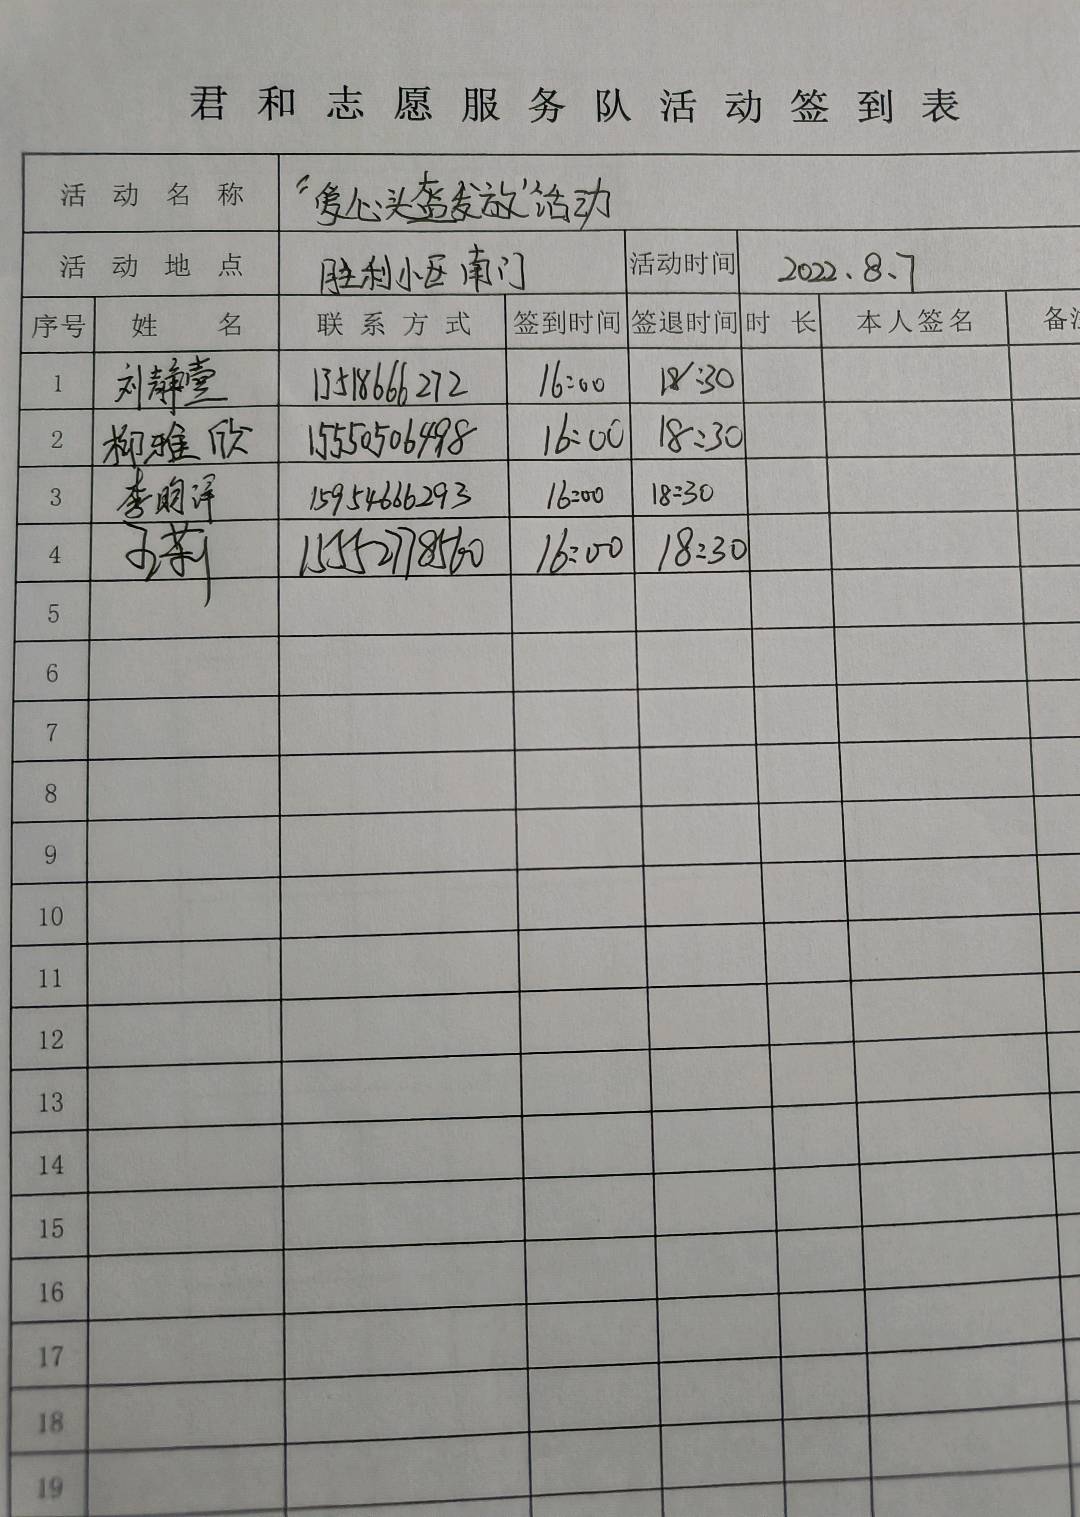 君和志愿服务队活动签到表
活动名称 “爱心头盔发放”活动
活动地点 胜利小区南门 活动时间 2022.8.7
序号 姓名 联系方式 签到时间 签退时间 时长 本人签名 备注
1 刘静壹 13518666272 16:00 18:30
2 柳雅欣 15550506498 16:00 18:30
3 李昀泽 15954666293 16:00 18:30
4 孟莉 15552778560 16:00 18:30
5
6
7
8
9
10
11
12
13
14
15
16
17
18
19